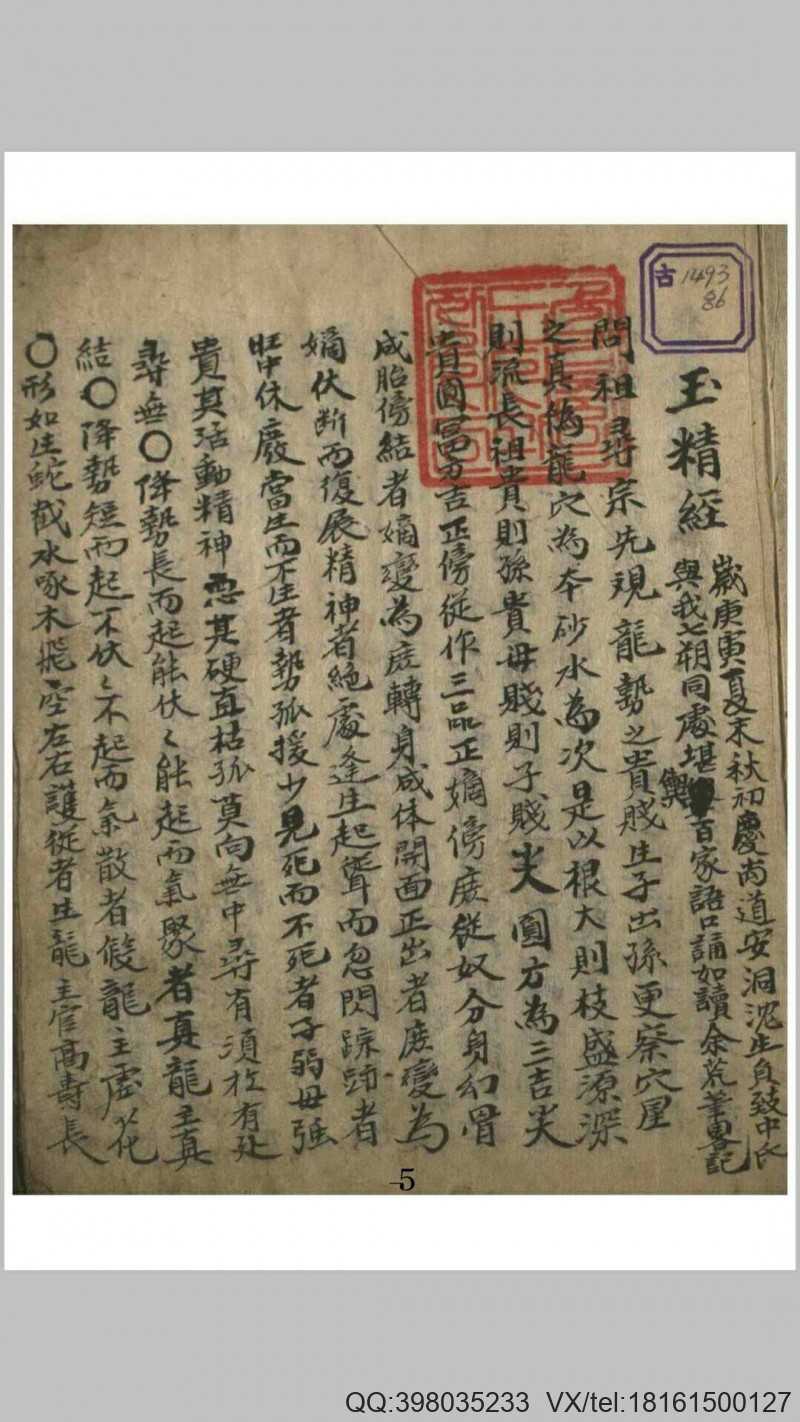 古 1493
86
玉精經
歲庚寅夏末秋初慶尚道安洞沈生員致中氏
與我七朔同處堪輿百家語口誦如讀余荒筆畧記
問祖尋宗先現龍勢之貴賤生子出孫更察穴星
之真偽龍穴為本砂水為次是以根大則枝盛源深
則流長祖貴則孫貴母賤則子賤尖圓方為三吉尖
貴圓富方吉正傍從作三品正嫡傍庶從奴分身幻骨
成胎傍結者嫡變為庶轉身成体開面正出者庶變為
嫡伏斷而復展精神者絕處逢生起聳而忽閃踪跡者
旺中休廢當生而不生者勢孤援少見死而不死者子弱母強
貴其活動精神恶其硬直枯孤莫向無中尋有須於有处
尋無〇降勢長而起能伏〻能起而氣聚者真龍主真
結〇降勢短而起不伏〻不起而氣散者假龍主虛花
〇形如生蛇截水啄木飛空左右護從者生龍主官高壽長
-5
QQ:398035233 VX/tel:18161500127